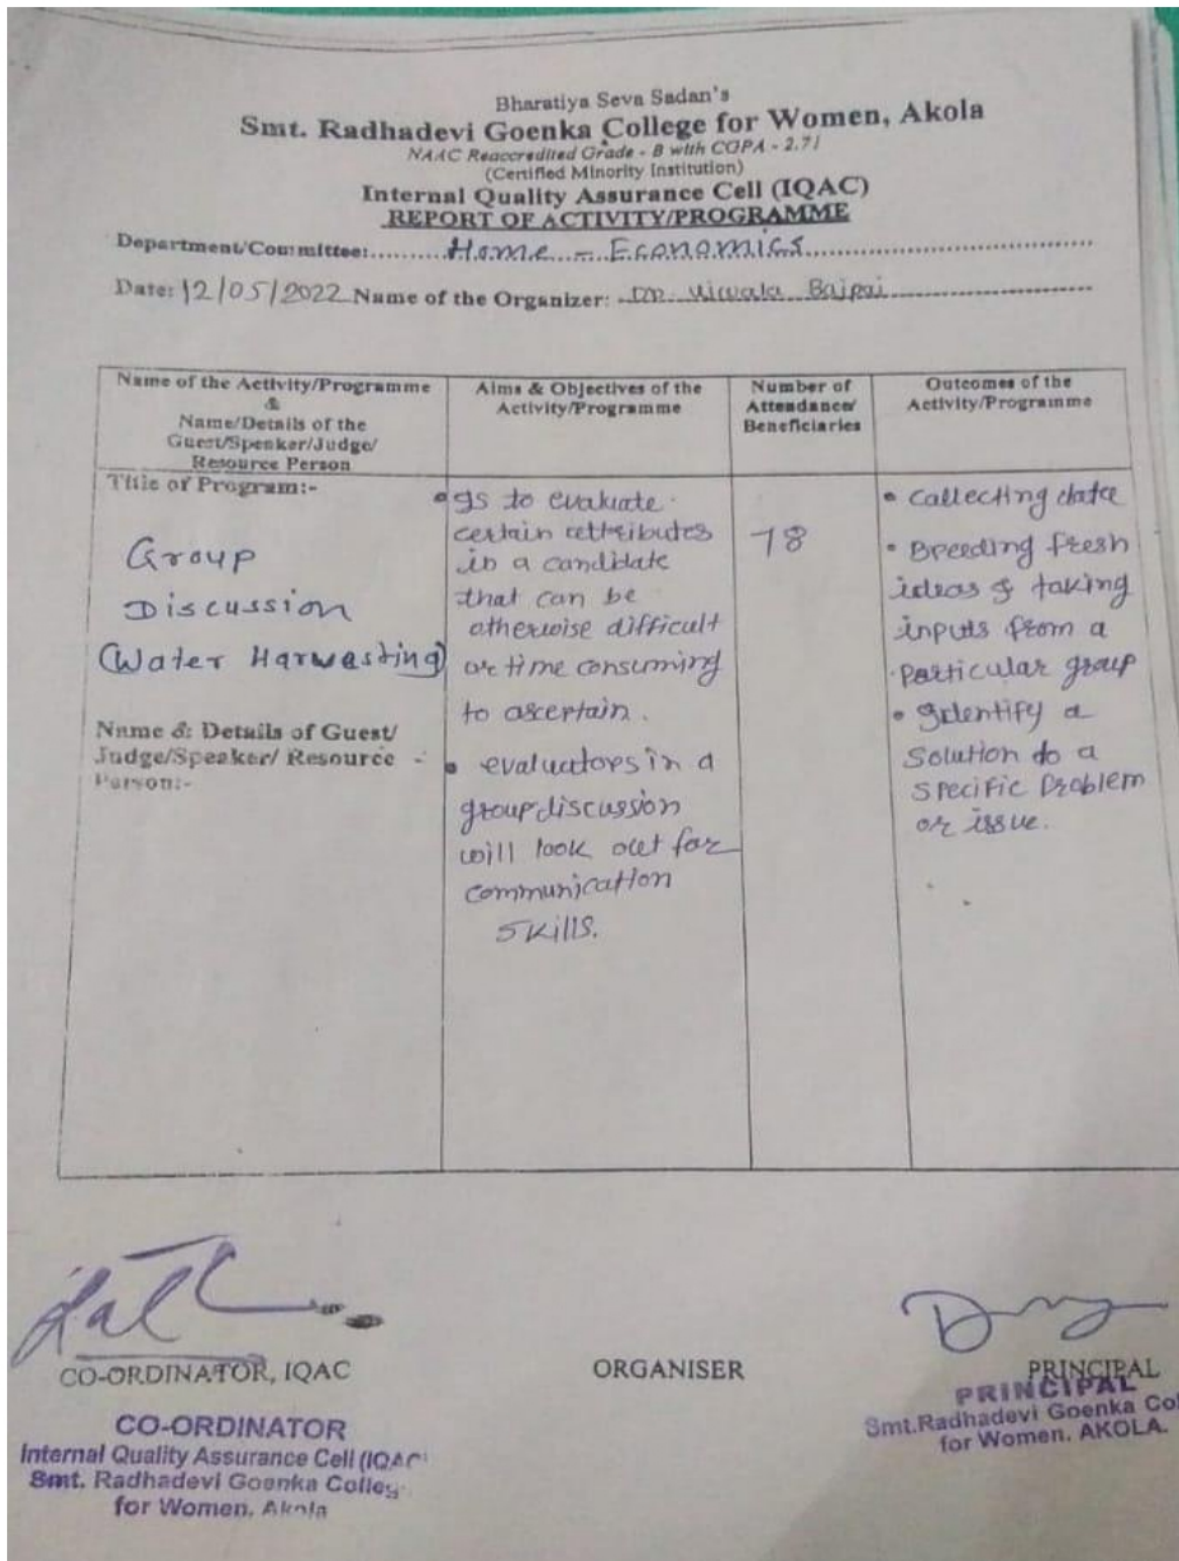 Bharatiya Seva Sadan's
Smt. Radhadevi Goenka College for Women, Akola
NAAC Reaccredited Grade - B with CGPA - 2.71
(Certified Minority Institution)
Internal Quality Assurance Cell (IQAC)
REPORT OF ACTIVITY/PROGRAMME
Department/Committee:.........Home - Economics..........
Date: 12/05/2022 Name of the Organizer: Dr. Bajpai
Name of the Activity/Programme
&
Name/Details of the
Guest/Speaker/Judge/
Resource Person
Aims & Objectives of the
Activity/Programme
Number of
Attendance/
Beneficiaries
Outcomes of the
Activity/Programme
Title of Program:-
Group
Discussion
(Water Harwesting)
Name & Details of Guest/
Judge/Speaker/ Resource -
Person:-
• Is to evaluate
certain attributes
in a candidate
that can be
otherwise difficult
or time consuming
to ascertain.
• evaluators in a
group discussion
will look out for
communication
skills.
78
• Collecting data
• Breeding fresh
ideas & taking
inputs from a
particular group
• Identify a
solution to a
specific problem
or issue.
CO-ORDINATOR, IQAC
ORGANISER
PRINCIPAL
CO-ORDINATOR
Internal Quality Assurance Cell (IQAC)
Smt. Radhadevi Goenka Colleg
for Women, Akola
PRINCIPAL
Smt.Radhadevi Goenka Col
for Women, AKOLA.